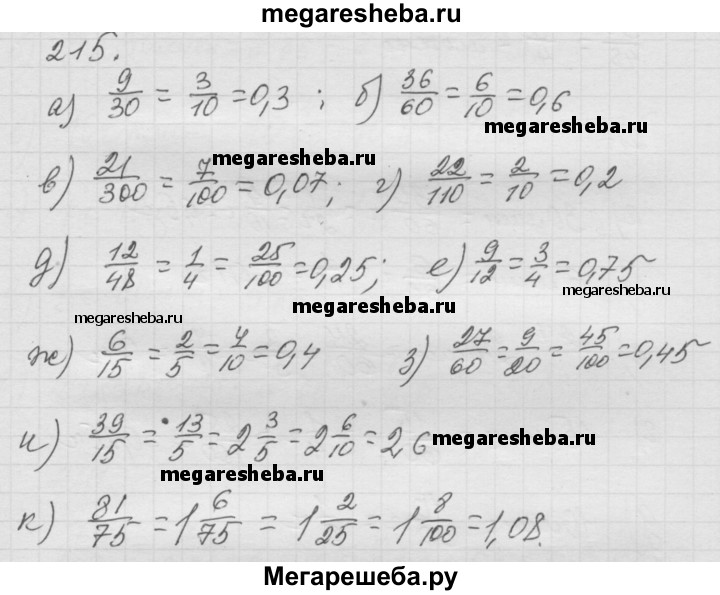 megaresheba.ru
215.
а) 9/30 = 3/10 = 0,3 ; б) 36/60 = 6/10 = 0,6
megaresheba.ru
в) 21/300 = 7/100 = 0,07; г) 22/110 = 2/10 = 0,2
megaresheba.ru
д) 12/48 = 1/4 = 25/100 = 0,25; е) 9/12 = 3/4 = 0,75
megaresheba.ru
megaresheba.ru
megaresheba.ru
ж) 6/15 = 2/5 = 4/10 = 0,4 з) 27/60 = 9/20 = 45/100 = 0,45
и) 39/15 = 13/5 = 2 3/5 = 2 6/10 = 2,6
megaresheba.ru
megaresheba.ru
к) 81/75 = 1 6/75 = 1 2/25 = 1 8/100 = 1,08.
Мегарешеба.ру